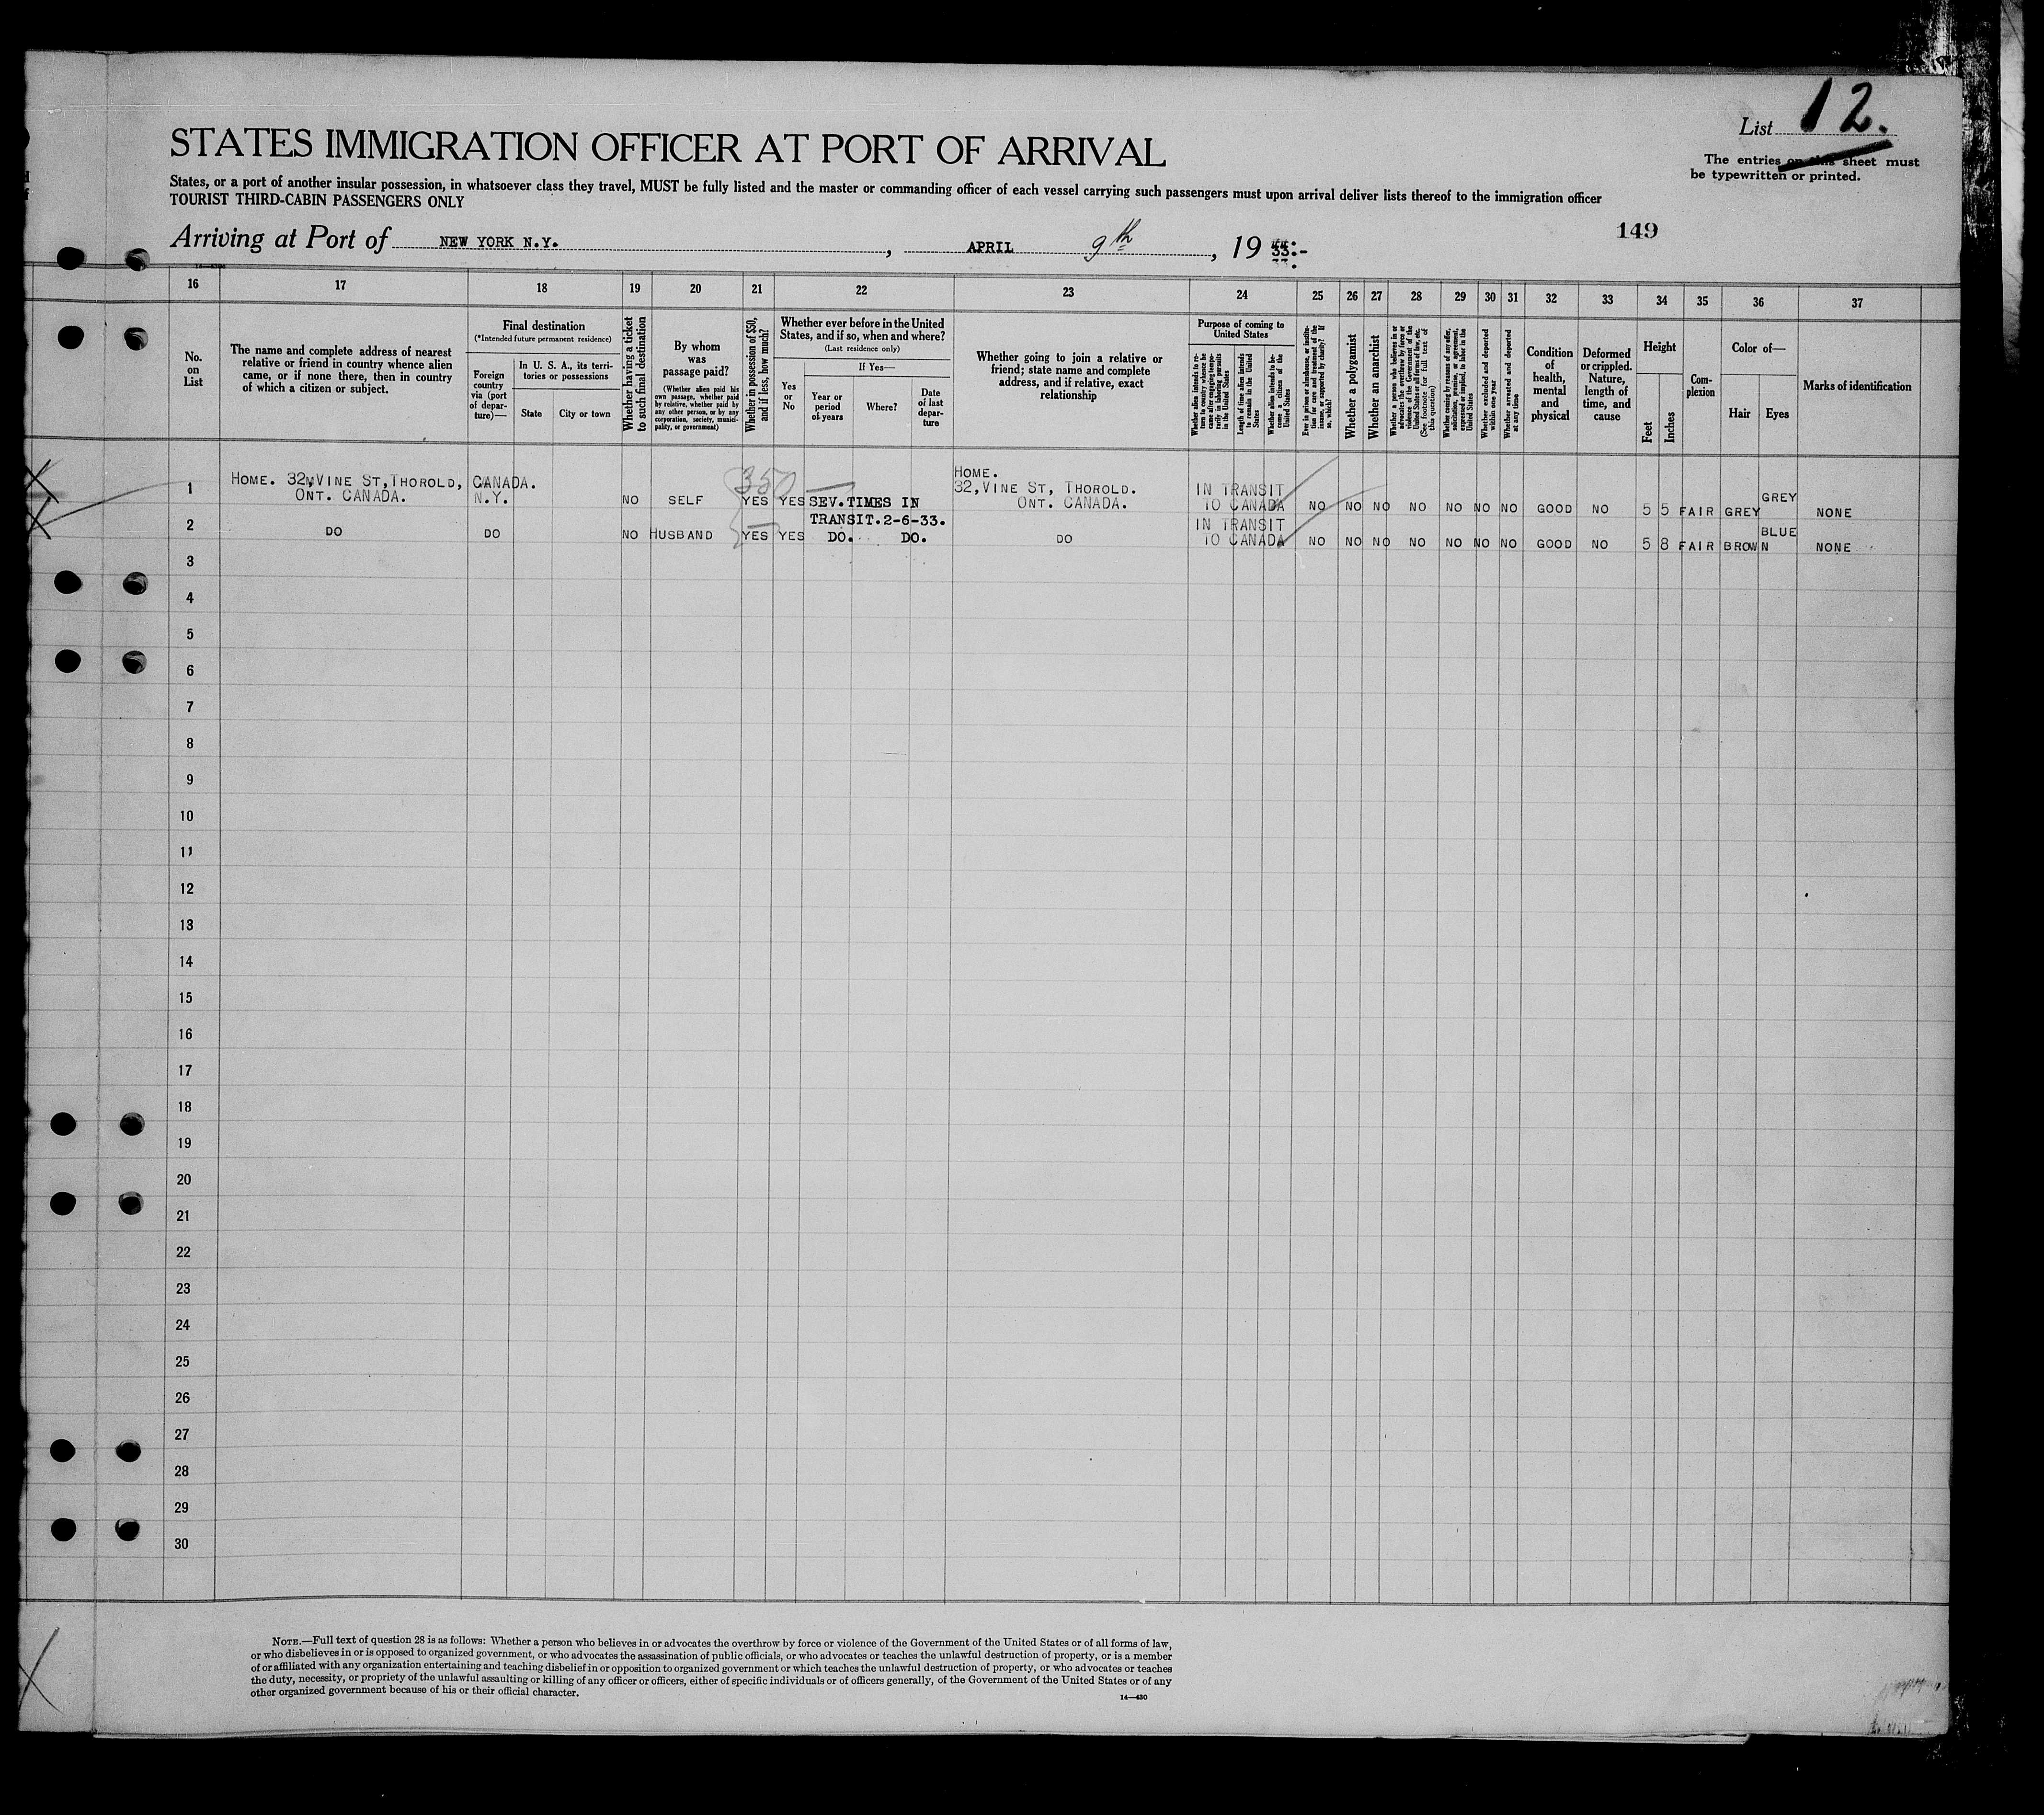 List 12.
STATES IMMIGRATION OFFICER AT PORT OF ARRIVAL
The entries on this sheet must
be typewritten or printed.
States, or a port of another insular possession, in whatsoever class they travel, MUST be fully listed and the master or commanding officer of each vessel carrying such passengers must upon arrival deliver lists thereof to the immigration officer
TOURIST THIRD-CABIN PASSENGERS ONLY
149
Arriving at Port of NEW YORK N.Y. , APRIL 9th , 19 33:-
16 17 18 19 20 21 22 23 24 25 26 27 28 29 30 31 32 33 34 35 36 37
No. on List
The name and complete address of nearest relative or friend in country whence alien came, or if none there, then in country of which a citizen or subject.
Final destination
(*Intended future permanent residence)
Foreign country via (port of departure)—
In U. S. A., its territories or possessions
State
City or town
Whether having a ticket to such final destination
By whom was passage paid?
(Whether alien paid his own passage, whether paid by relative, whether paid by any other person, or by any corporation, society, municipality, or government)
Whether in possession of $50, and if less, how much?
Whether ever before in the United States, and if so, when and where?
(Last residence only)
Yes or No
If Yes—
Year or period of years
Where?
Date of last departure
Whether going to join a relative or friend; state name and complete address, and if relative, exact relationship
Purpose of coming to United States
Whether alien intends to return to country whence he came after engaging temporarily in laboring pursuits in the United States
Length of time alien intends to remain in the United States
Whether alien intends to become a citizen of the United States
Ever in prison or almshouse, or institution for care and treatment of the insane, or supported by charity? If so, which?
Whether a polygamist
Whether an anarchist
Whether a person who believes in or advocates the overthrow by force or violence of the Government of the United States or all forms of law, etc. (See footnote for full text of this question)
Whether coming by reasons of any offer, solicitation, promise, or agreement, expressed or implied, to labor in the United States
Whether excluded and deported within one year
Whether arrested and deported at any time
Condition of health, mental and physical
Deformed or crippled. Nature, length of time, and cause
Height
Feet
Inches
Complexion
Color of—
Hair
Eyes
Marks of identification
1 HOME. 32,VINE ST,THOROLD, ONT. CANADA. CANADA. N.Y. NO SELF 350 YES YES SEV.TIMES IN TRANSIT.2-6-33. HOME. 32,VINE ST, THOROLD. ONT. CANADA. IN TRANSIT TO CANADA NO NO NO NO NO NO NO GOOD NO 5 5 FAIR GREY GREY NONE
2 DO DO NO HUSBAND YES YES DO. DO. DO IN TRANSIT TO CANADA NO NO NO NO NO NO NO GOOD NO 5 8 FAIR BROWN BLUE NONE
3
4
5
6
7
8
9
10
11
12
13
14
15
16
17
18
19
20
21
22
23
24
25
26
27
28
29
30
NOTE.—Full text of question 28 is as follows: Whether a person who believes in or advocates the overthrow by force or violence of the Government of the United States or of all forms of law,
or who disbelieves in or is opposed to organized government, or who advocates the assassination of public officials, or who advocates or teaches the unlawful destruction of property, or is a member
of or affiliated with any organization entertaining and teaching disbelief in or opposition to organized government or which teaches the unlawful destruction of property, or who advocates or teaches
the duty, necessity, or propriety of the unlawful assaulting or killing of any officer or officers, either of specific individuals or of officers generally, of the Government of the United States or of any
other organized government because of his or their official character.
14—430